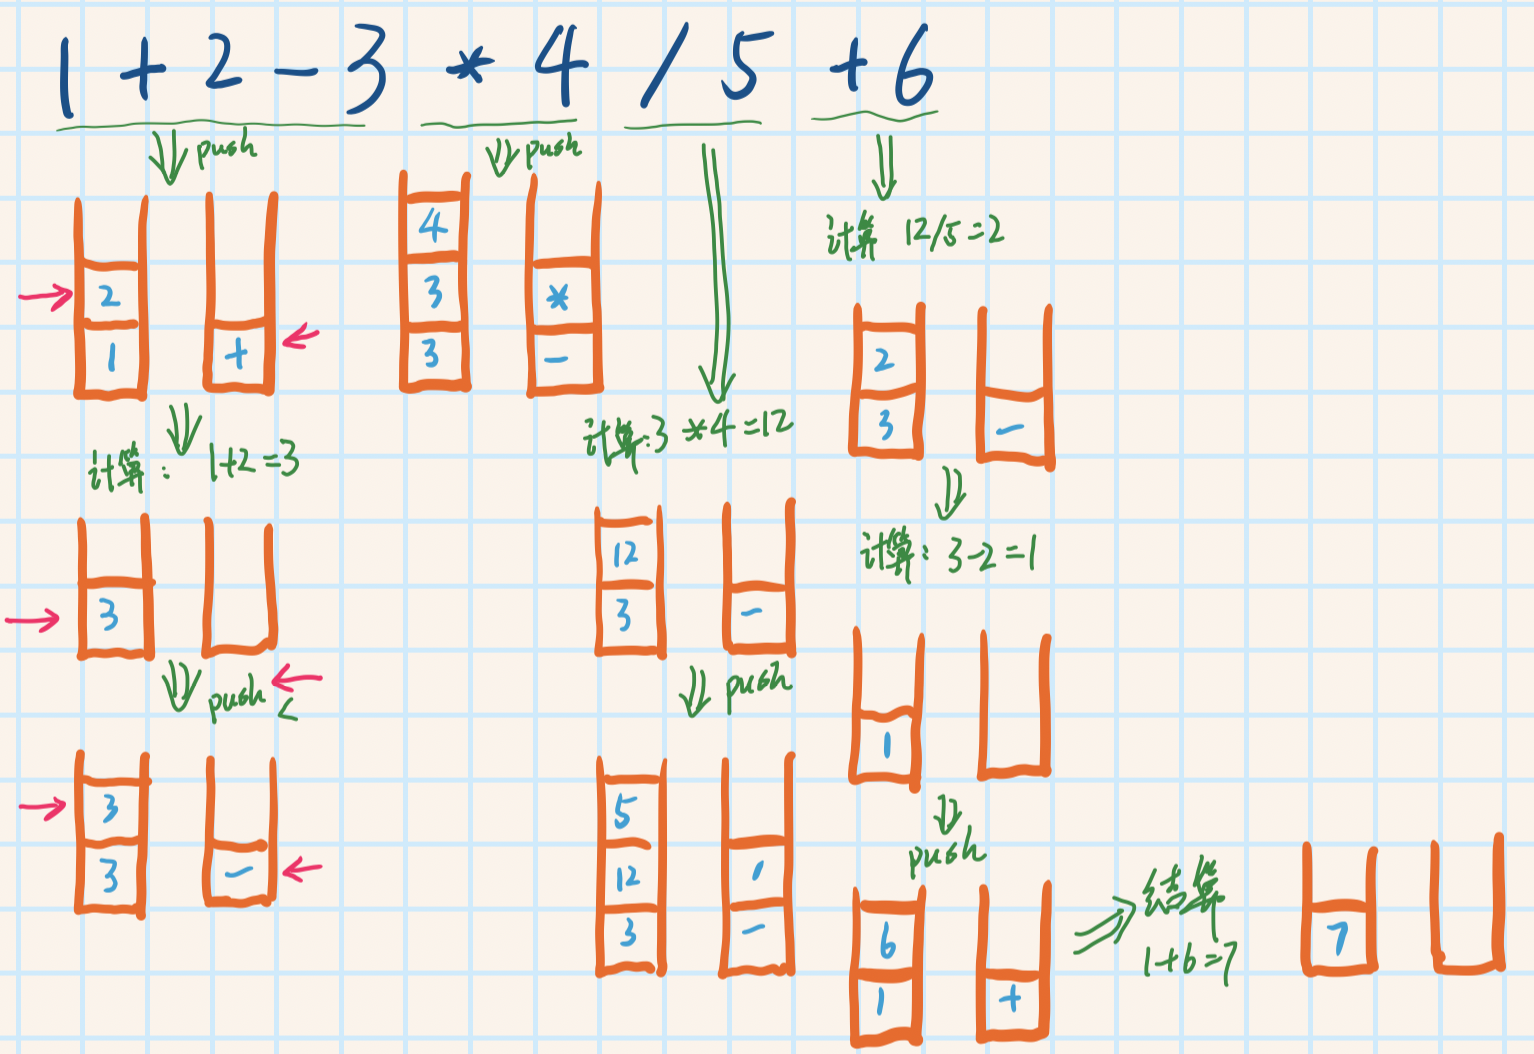 1+2-3*4/5+6
push
2
1
+
计算: 1+2=3
3
push
3
3
-
push
4
3
3
*
-
计算:3*4=12
12
3
-
push
5
12
3
/
-
计算 12/5=2
2
3
-
计算: 3-2=1
1
push
6
1
+
结算
1+6=7
7